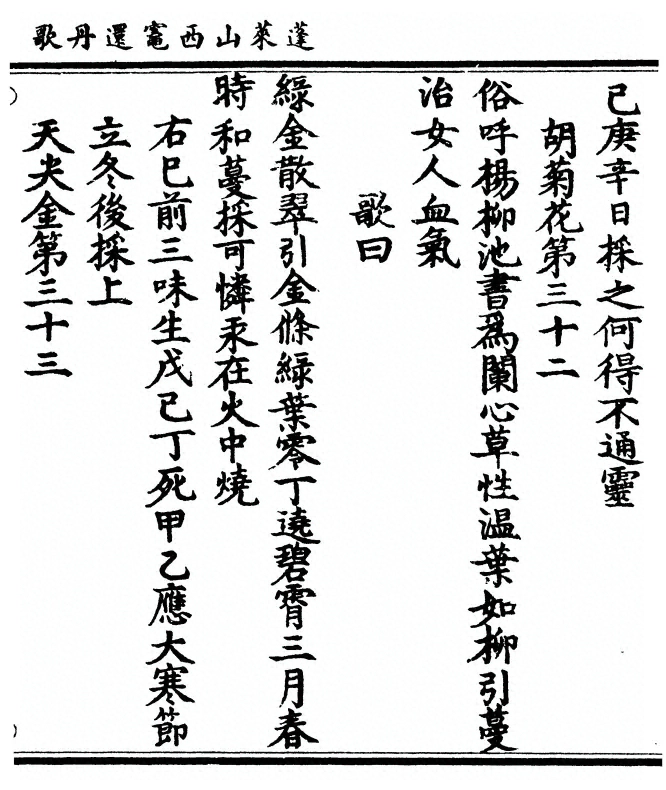 蓬萊山西竈還丹歌
己庚辛日採之何得不通靈
胡菊花第三十二
俗呼楊柳池書爲闌心草性溫葉如柳引蔓
治女人血氣
歌曰
綠金散翠引金條綠葉零丁遶碧霄三月春
時和蔓採可憐汞在火中燒
右巳前三味生戊己丁死甲乙應大寒節
立冬後採上
天尖金第三十三